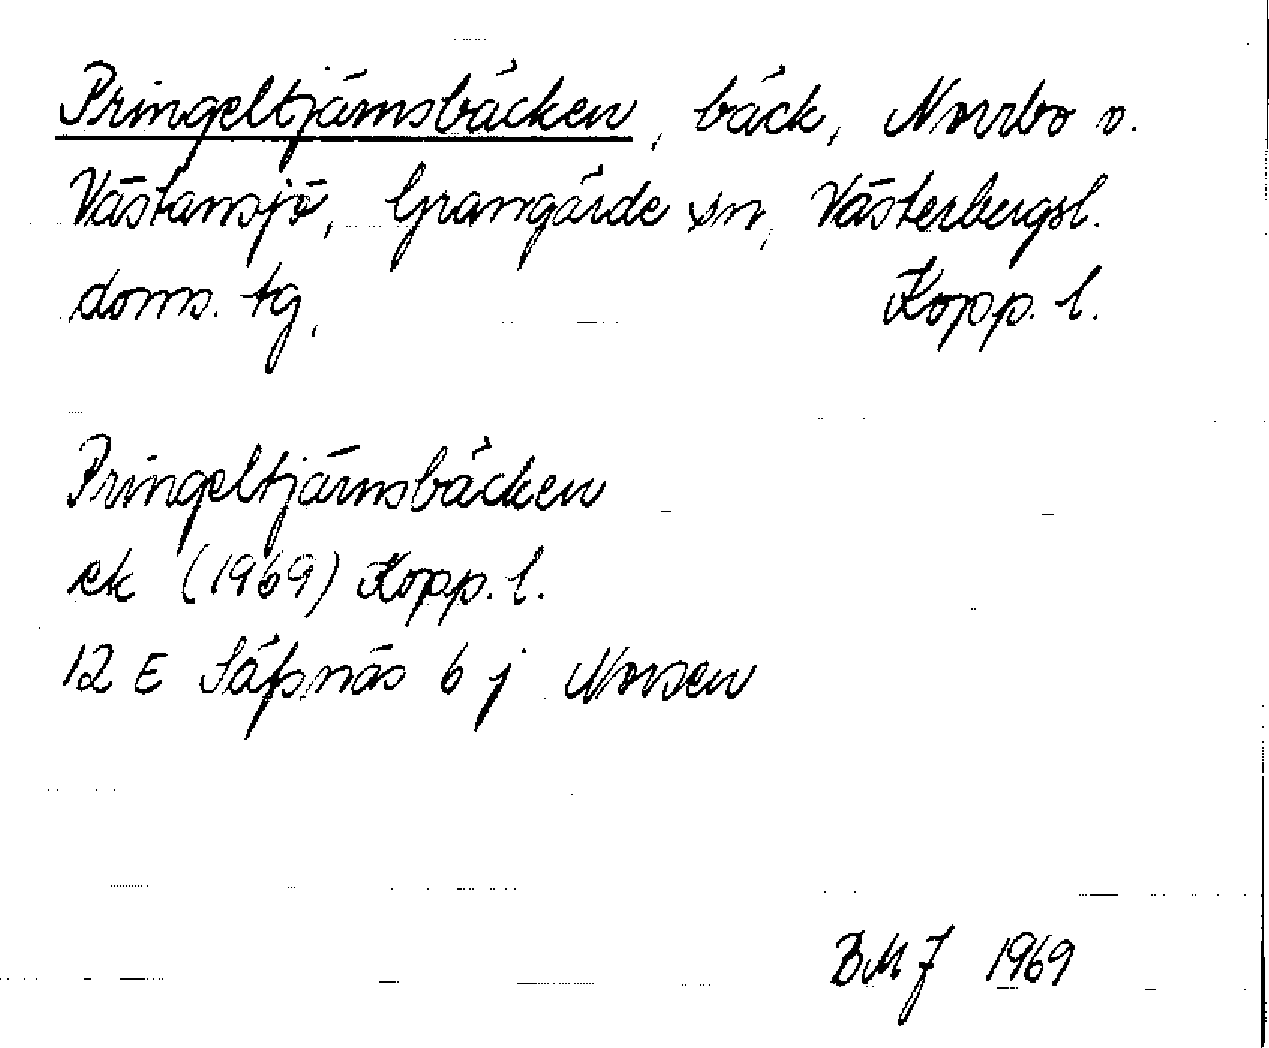 Pringeltjärnsbäcken, bäck, Norrbo o.
Västansjö, Grangärde sn, Västerbergsl.
doms. tg, Kopp. l.
Pringeltjärnsbäcken
ek (1969) Kopp. l.
12 E Säfsnäs 6 j Norsen
BMJ 1969